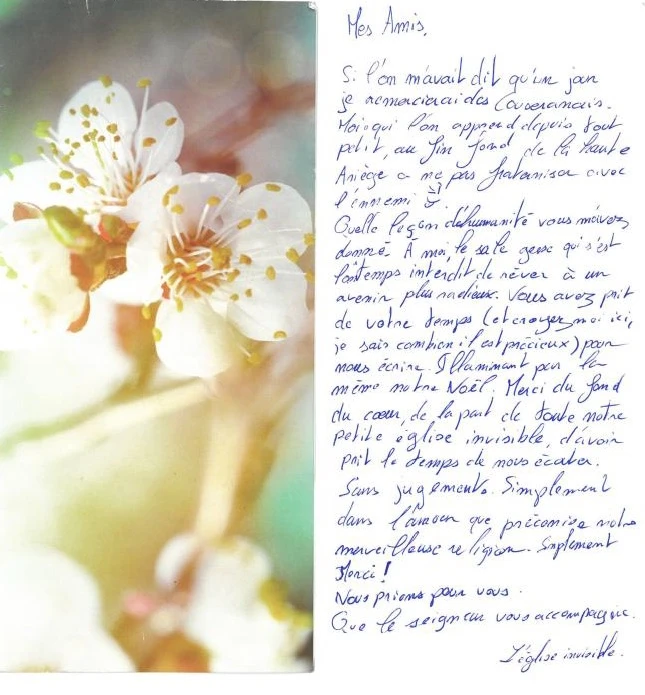 Mes Amis,
Si l'on m'avait dit qu'un jour
je remercierai des Couserannais.
Moi qui l'on apprend depuis tout
petit, au fin fond de la haute
Ariège a ne pas fraterniser avec
l'ennemi
Quelle leçon d'humanité vous m'avez
donnée. À moi, le sale gosse qui s'est
longtemps interdit de rêver à un
avenir plus radieux. Vous avez prit
de votre temps (et croyez moi ici,
je sais combien il est précieux) pour
nous écrire. Illuminant par la
même notre Noël. Merci du fond
du cœur, de la part de toute notre
petite église invisible, d'avoir
prit le temps de nous écouter.
Sans jugements. Simplement
dans l'amour que préconise notre
merveilleuse religion. Simplement
Merci !
Nous prions pour vous.
Que le seigneur vous accompagne.
L'église invisible.